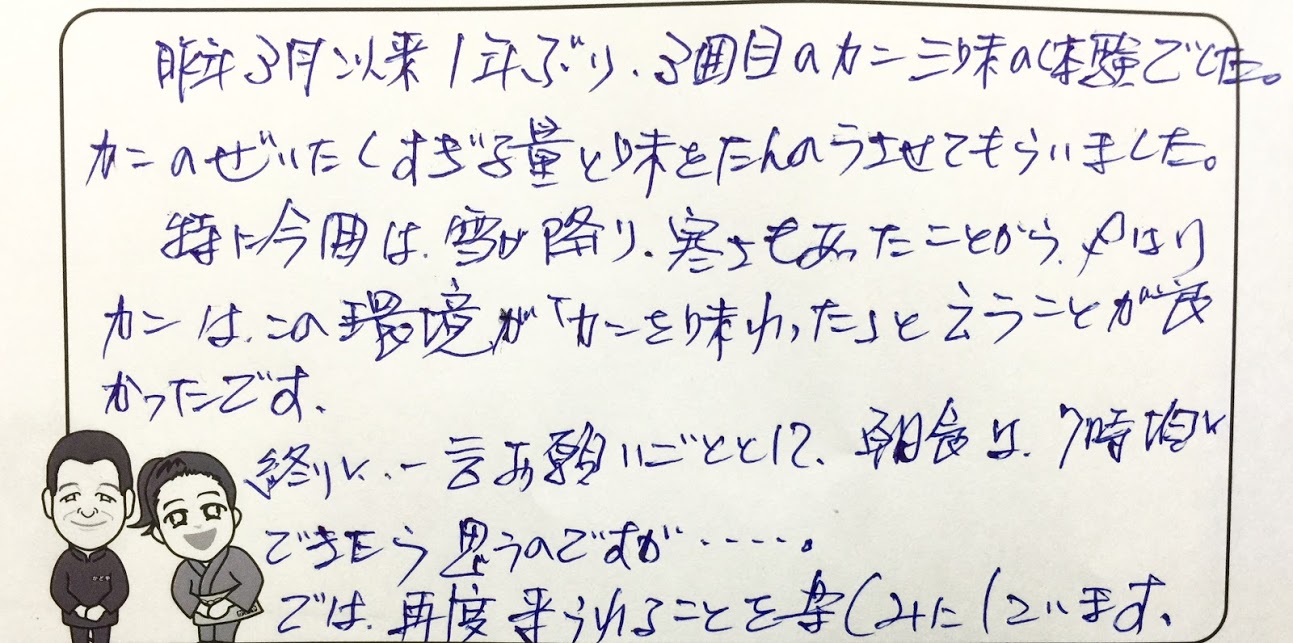 昨年3月以来1年ぶり、3回目のカニ三昧の体験でした。
カニのぜいたくすぎる量と味をたんのうさせてもらいました。
特に今回は、雪が降り、寒さもあったことから、やはり
カニは、この環境が「カニを味わった」と言うことが良
かったです。
終りに、一言お願いごととして、朝食は、7時頃に
できたら思うのですが……。
では、再度来られることを楽しみにしています。